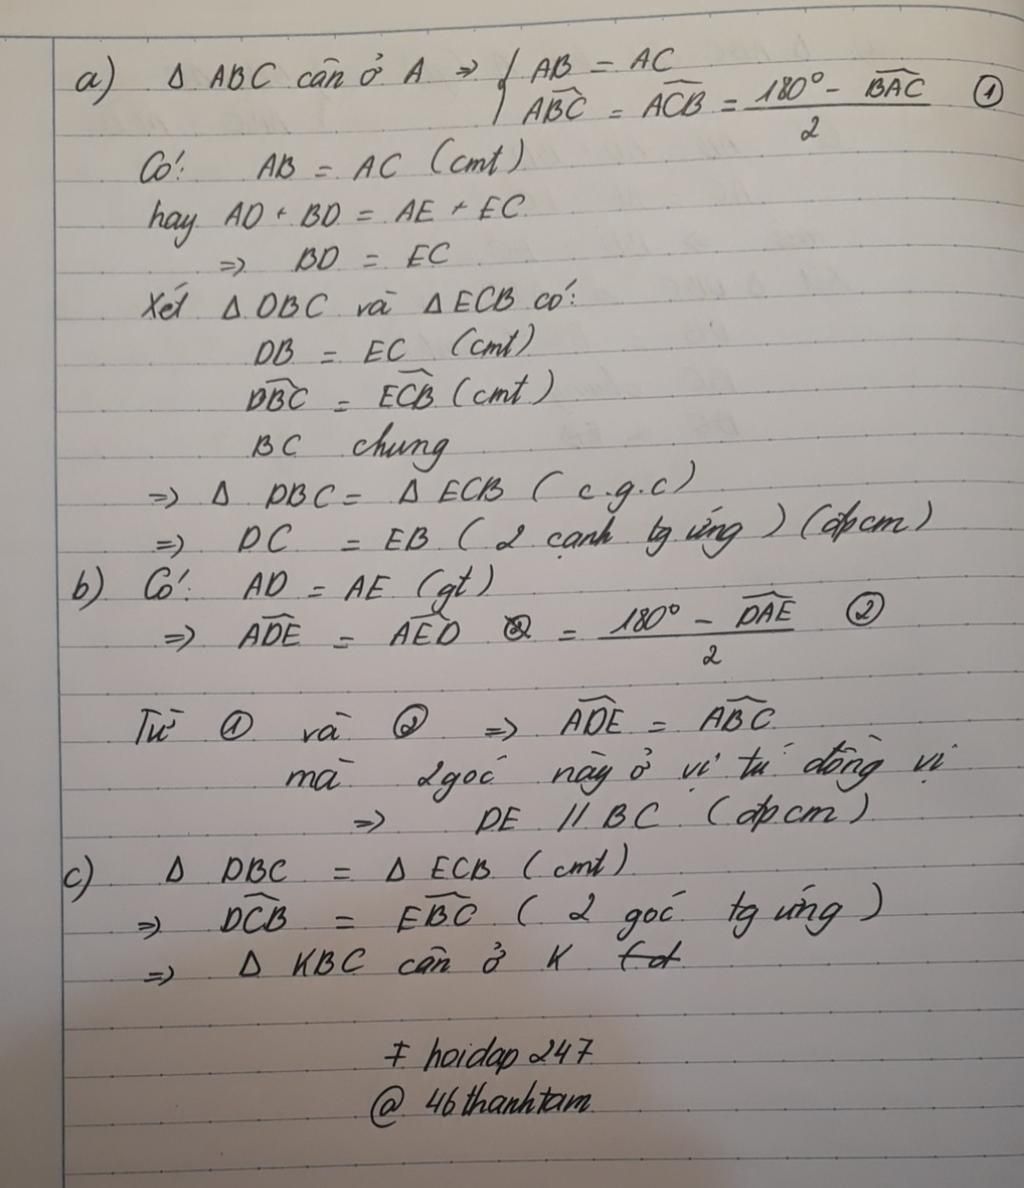 a) Δ ABC cân ở A => { AB = AC
ABC^ = ACB^ = (180° - BAC^) / 2 ①
Có: AB = AC (cmt)
hay AD + BD = AE + EC
=> BD = EC
Xét Δ DBC và Δ ECB có:
DB = EC (cmt)
DBC^ = ECB^ (cmt)
BC chung
=> Δ DBC = Δ ECB (c.g.c)
=> DC = EB (2 cạnh tg ứng) (đpcm)
b) Có: AD = AE (gt)
=> ADE^ = AED^ = (180° - DAE^) / 2 ②
Từ ① và ② => ADE^ = ABC^
mà 2 góc này ở vị trí đồng vị
=> DE // BC (đpcm)
c) Δ DBC = Δ ECB (cmt)
=> DCB^ = EBC^ (2 góc tg ứng)
=> Δ KBC cân ở K
# hoidap 247
@ 46thanhtam